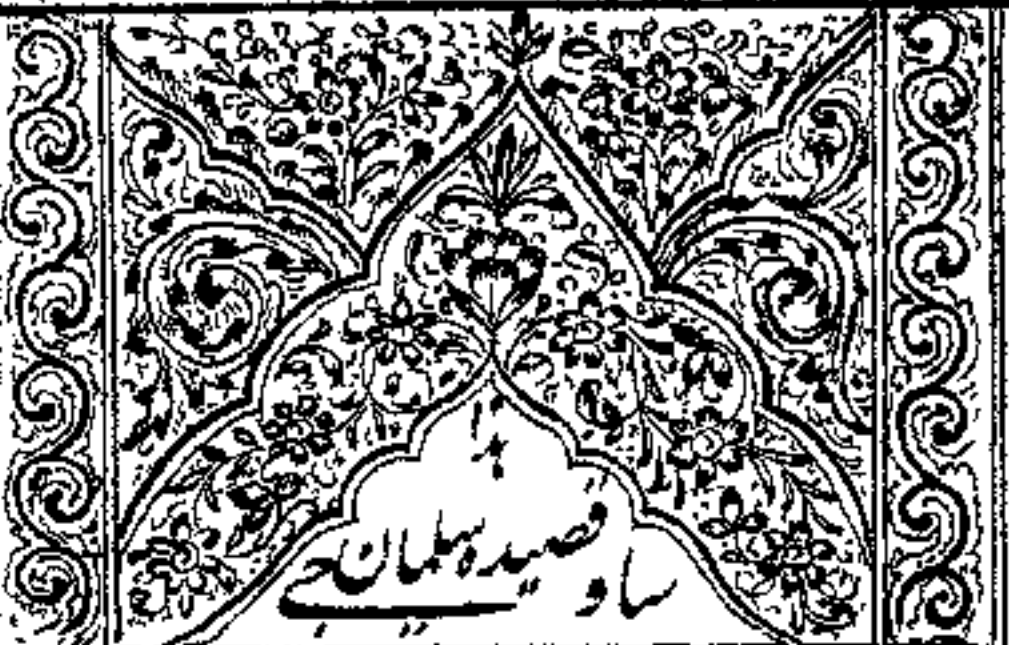 هذا
قصیده سلمان
ساوجی